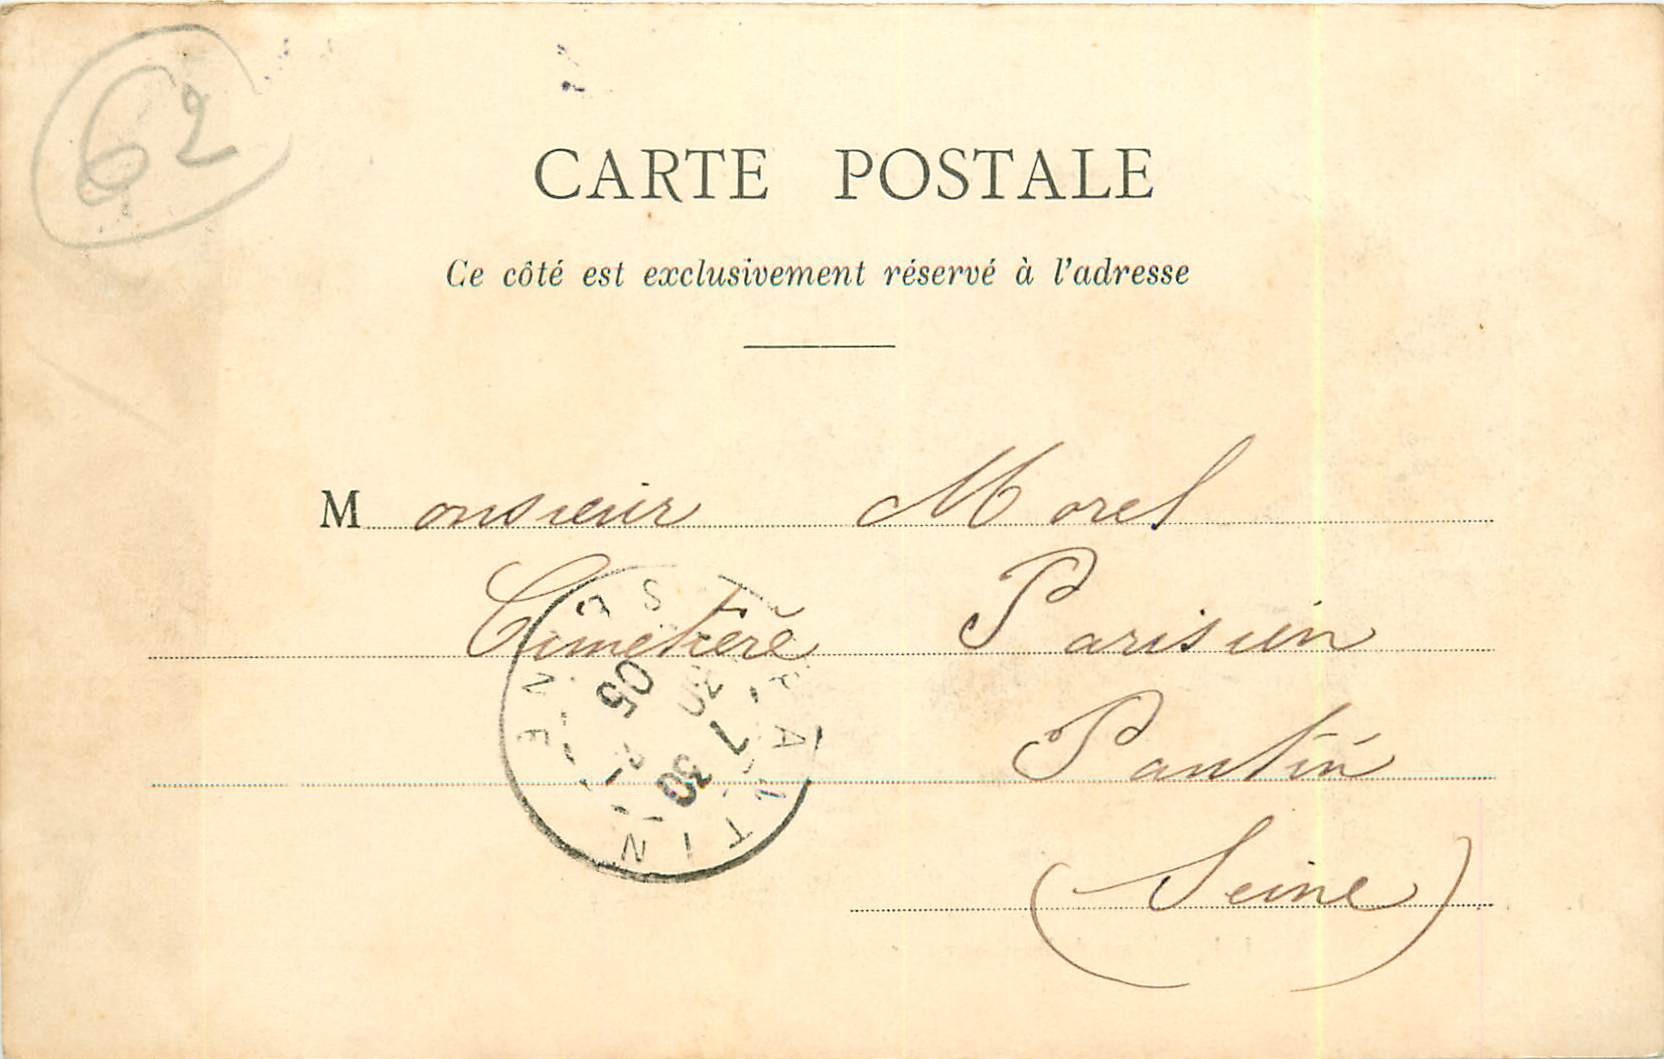 62
CARTE POSTALE
Ce côté est exclusivement réservé à l'adresse
Monsieur Morel
Cimetière Parisien
Pantin
(Seine)
PANTIN
SEINE
7 30
05